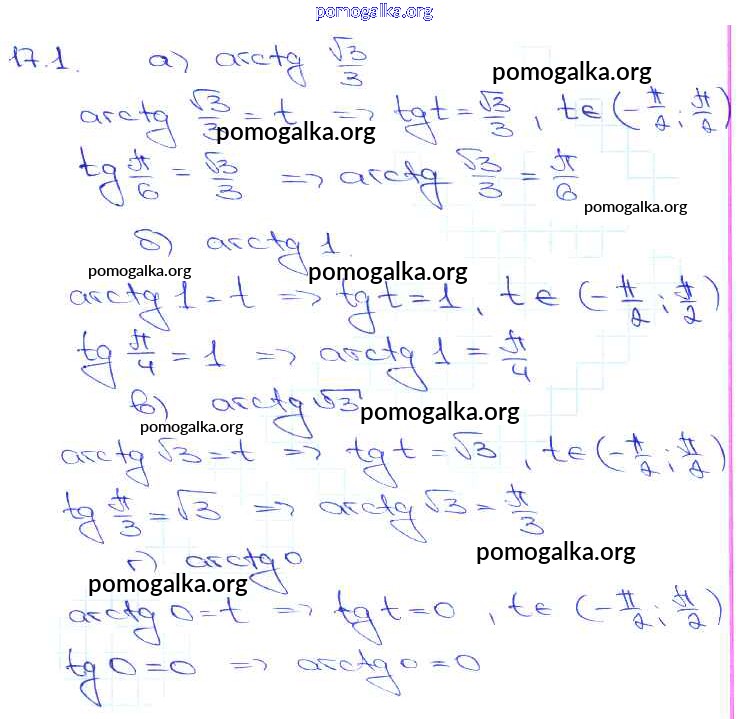 pomogalka.org
17.1. а) arctg √3/3
pomogalka.org
arctg √3/3 = t => tg t = √3/3, t ∈ (-π/2; π/2)
pomogalka.org
tg π/6 = √3/3 => arctg √3/3 = π/6
pomogalka.org
б) arctg 1.
pomogalka.org pomogalka.org
arctg 1 = t => tg t = 1, t ∈ (-π/2; π/2)
tg π/4 = 1 => arctg 1 = π/4
в) arctg √3
pomogalka.org
pomogalka.org
arctg √3 = t => tg t = √3, t ∈ (-π/2; π/2)
tg π/3 = √3 => arctg √3 = π/3
г) arctg 0
pomogalka.org
pomogalka.org
arctg 0 = t => tg t = 0, t ∈ (-π/2; π/2)
tg 0 = 0 => arctg 0 = 0